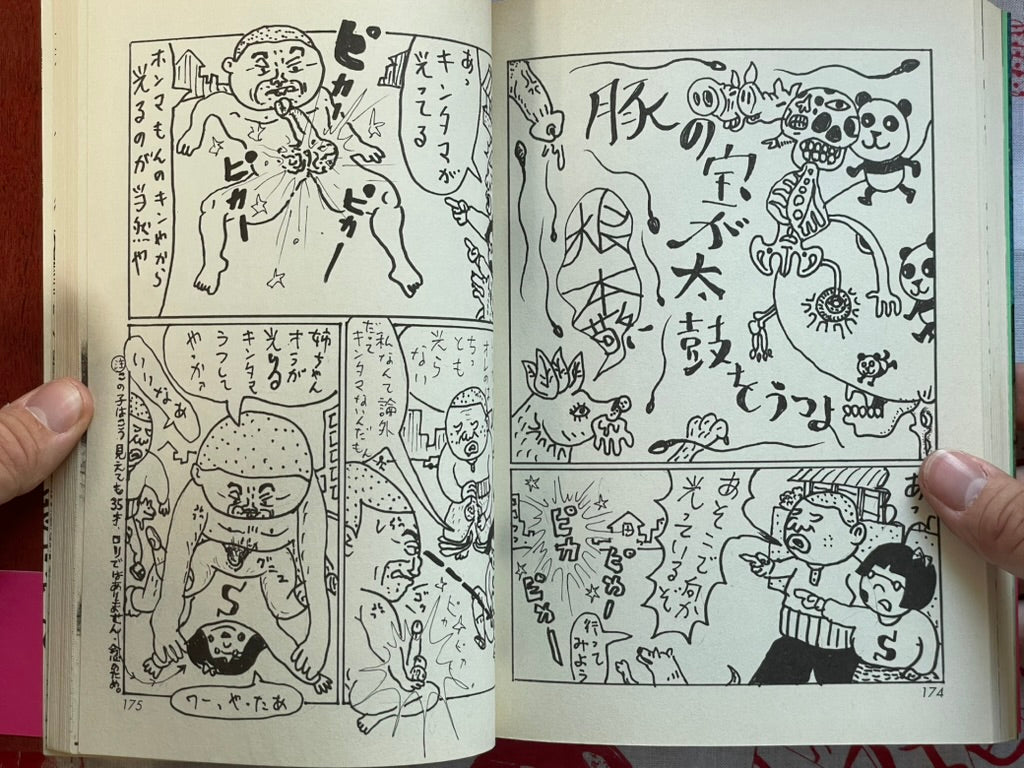 豚の宝が太鼓をうつよ
根本敬
あっ
あそこで何か
光っているぞ
ピカ
ピカー
ピカー
行って
みよう
S
174
あっ
キンタマが
光ってる
ピカー
ピカー
ピカー
ホンマもんのキンやから
光るのが当然や
オレの
ちっとも
光ら
ない
私なんて論外
だって
キンタマないんだもん
姉ちゃん
オラが
光る
キンタマ
うつして
やっか?
いいなあ
S
ワーっ、や・たあ
注 この子はこう見えても35才。ロリではありません、念のため。
175